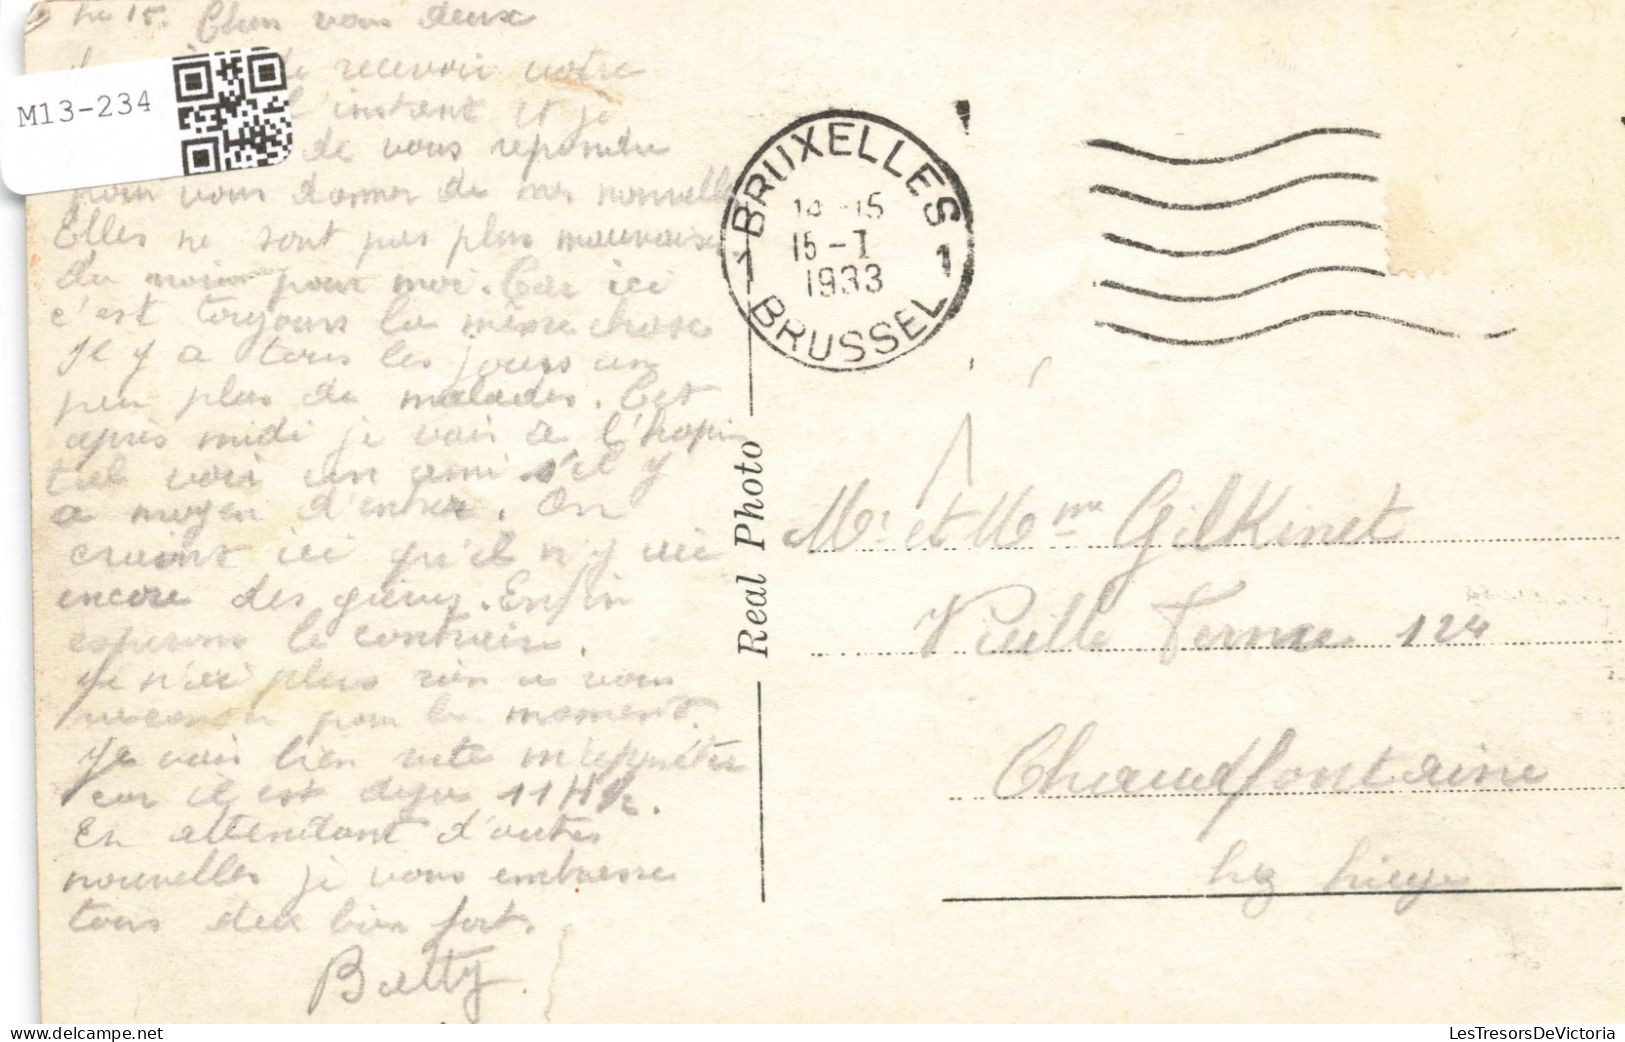 Le 15. Chers vous deux
de recevoir votre
l'instant et je
M13-234
de vous repondre
pour vous donner de mes nouvelles
Elles ne sont pas plus mauvaises
du moins pour moi. Car ici
c'est toujours la même chose
Il y a tous les jours un
peu plus de malades. Cet
apres midi je vais à l'hopi
tal voir un ami s'il y
a moyen d'entrer. On
craint ici qu'il n'y ait
encore des
Enfin
esperons le contraire.
Je n'ai plus rien a vous
raconter pour le moment.
Je vais bien vite m'appreter
car il est deja 11H½.
En attendant d'autres
nouvelles je vous embrasse
tous deux bien fort
Betty.
Real Photo
1 BRUXELLES 1
15
15-I
1933
BRUSSEL
Mr et Mme Gilkinet
Vieille Ferme 124
Chaudfontaine
lez Liege
LesTresorsDeVictoria